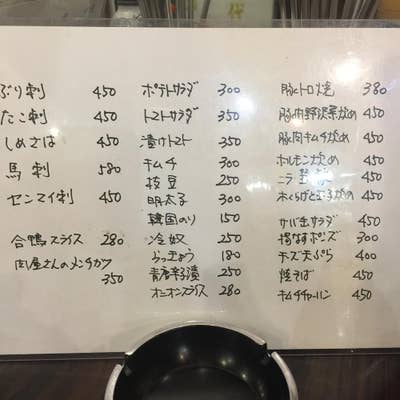 ぶり刺 450
たこ刺 450
しめさば 450
馬刺 580
センマイ刺 450
合鴨スライス 280
肉屋さんのメンチカツ
350
ポテトサラダ 300
トマトサラダ 350
漬けトマト 350
キムチ 300
枝豆 250
明太子 300
韓国のり 150
冷奴 250
らっきょう 180
青唐辛子漬 250
オニオンスライス 280
豚トロ焼 380
豚肉野菜炒め 450
豚肉キムチ炒め 450
ホルモン炒め 450
ニラ 450
木くらげとたまご炒め 450
サバ缶サラダ 450
揚なすポンズ 300
チーズ天ぷら 400
焼そば 450
キムチチャーハン 450